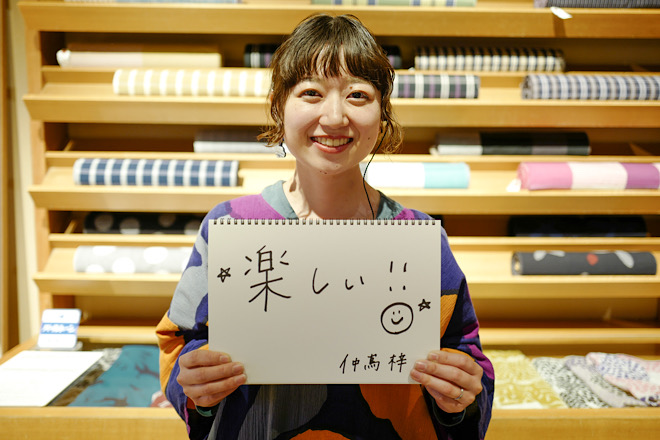 ☆楽しい!!☆
仲嶌 梓